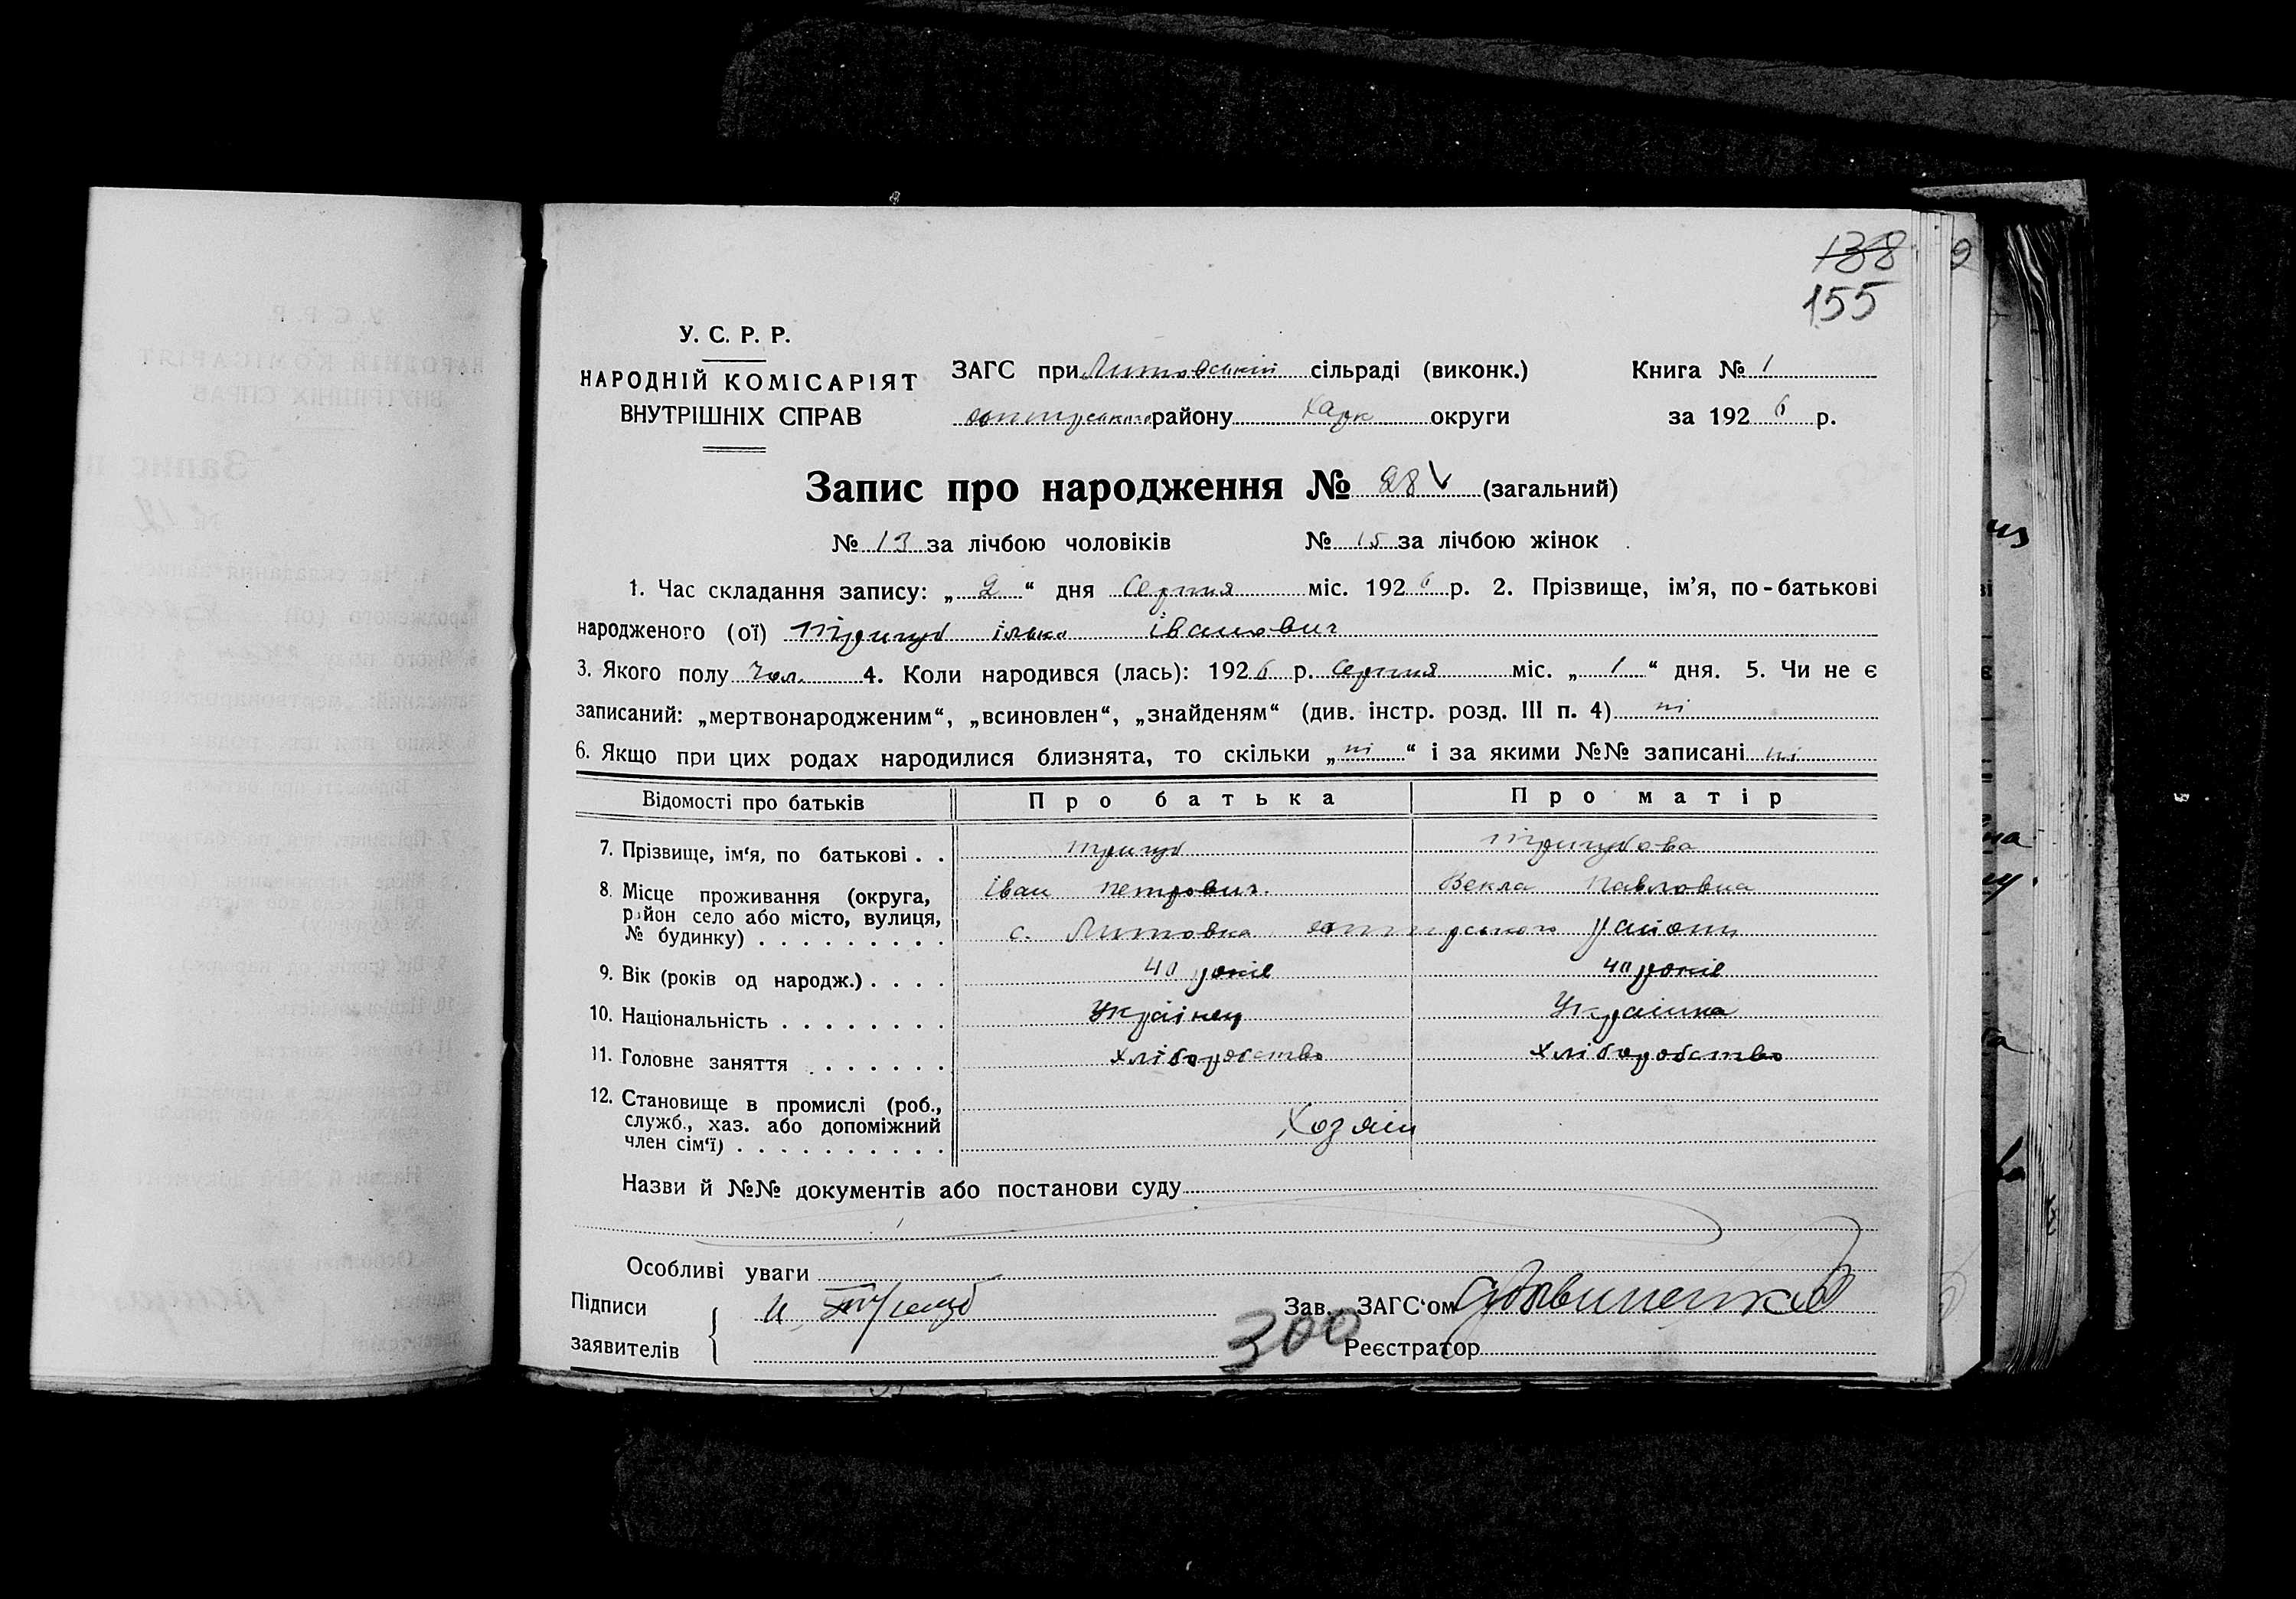 138
155
У. С. Р. Р.
НАРОДНІЙ КОМІСАРІЯТ
ВНУТРІШНІХ СПРАВ
ЗАГС при Литовській сільраді (виконк.)
району Харк округи
Книга № 1
за 1926 р.
Запис про народження № 28 (загальний)
№ 13 за лічбою чоловіків № 15 за лічбою жінок
1. Час складання запису: „2“ дня Серпня міс. 1926 р. 2. Прізвище, ім’я, по-батькові
народженого (ої) Трищуб Ілько Іванович
3. Якого полу Чол. 4. Коли народився (лась): 1926 р. Серпня міс. „1“ дня. 5. Чи не є
записаний: „мертвонародженим“, „всиновлен“, „знайденям“ (див. інстр. розд. III п. 4) ні
6. Якщо при цих родах народилися близнята, то скільки „ні“ і за якими №№ записані ні
Відомості про батьків Про батька Про матір
7. Прізвище, ім‘я, по батькові . . Трищуб Трищубова
8. Місце проживання (округа, Іван Петрович Векла Павловна
район село або місто, вулиця,
№ будинку) . . . . . . . . . с. Литовка району
9. Вік (років од народж.) . . . . 40 років 40 років
10. Національність . . . . . . . . Українец Украінка
11. Головне заняття . . . . . . хліборобство хліборобство
12. Становище в промислі (роб.,
служб., хаз. або допоміжний Хозяїн
член сім‘ї) . . . . . . . . . .
Назви й №№ документів або постанови суду
Особливі уваги
Підписи И. Трищуб Зав. ЗАГС‘ом
заявителів 300 Реєстратор